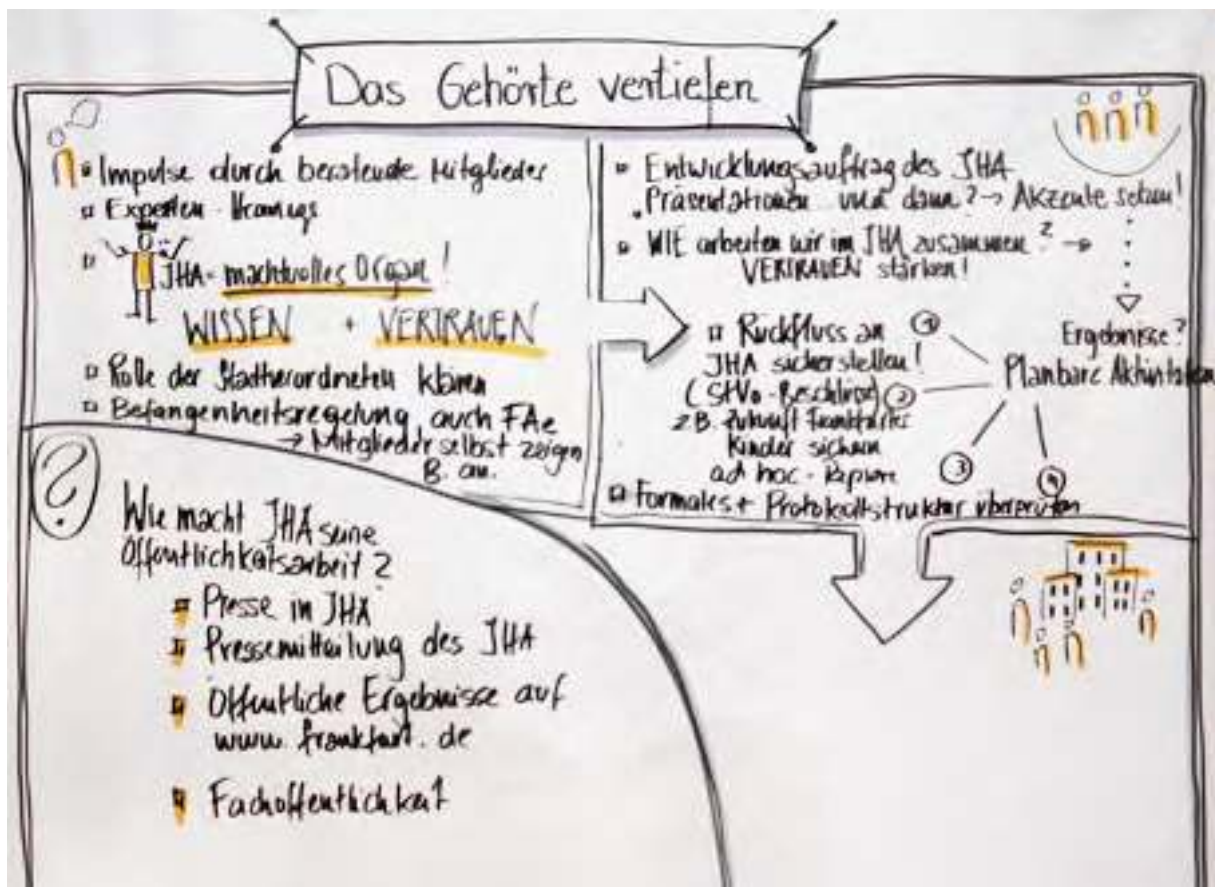 Das Gehörte vertiefen
Impulse durch beratende Mitglieder
Experten-Hearings
JHA = machtvolles Organ!
WISSEN + VERTRAUEN
Rolle der Stadtverordneten klären
Befangenheitsregelung, auch FAe
→ Mitglieder selbst zeigen
B. an.
Entwicklungsauftrag des JHA
Präsentationen und dann? → Akzente setzen!
WIE arbeiten wir im JHA zusammen? →
VERTRAUEN stärken!
Rückfluss an
JHA sicherstellen!
(StVo-Beschlüsse)
z.B. Zukunft Frankfurter
Kinder sichern
ad hoc-Papiere
Formales + Protokollstruktur überprüfen
Ergebnisse?
Planbare Aktivitäten
1
2
3
4
?
Wie macht JHA seine
Öffentlichkeitsarbeit?
Presse in JHA
Pressemitteilung des JHA
Öffentliche Ergebnisse auf
www.frankfurt.de
Fachöffentlichkeit